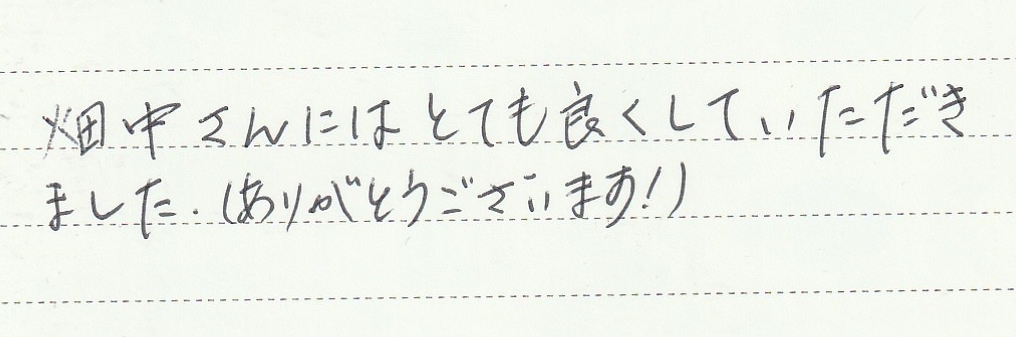 畑中さんにはとても良くしていただき
ました.(ありがとうございます!)